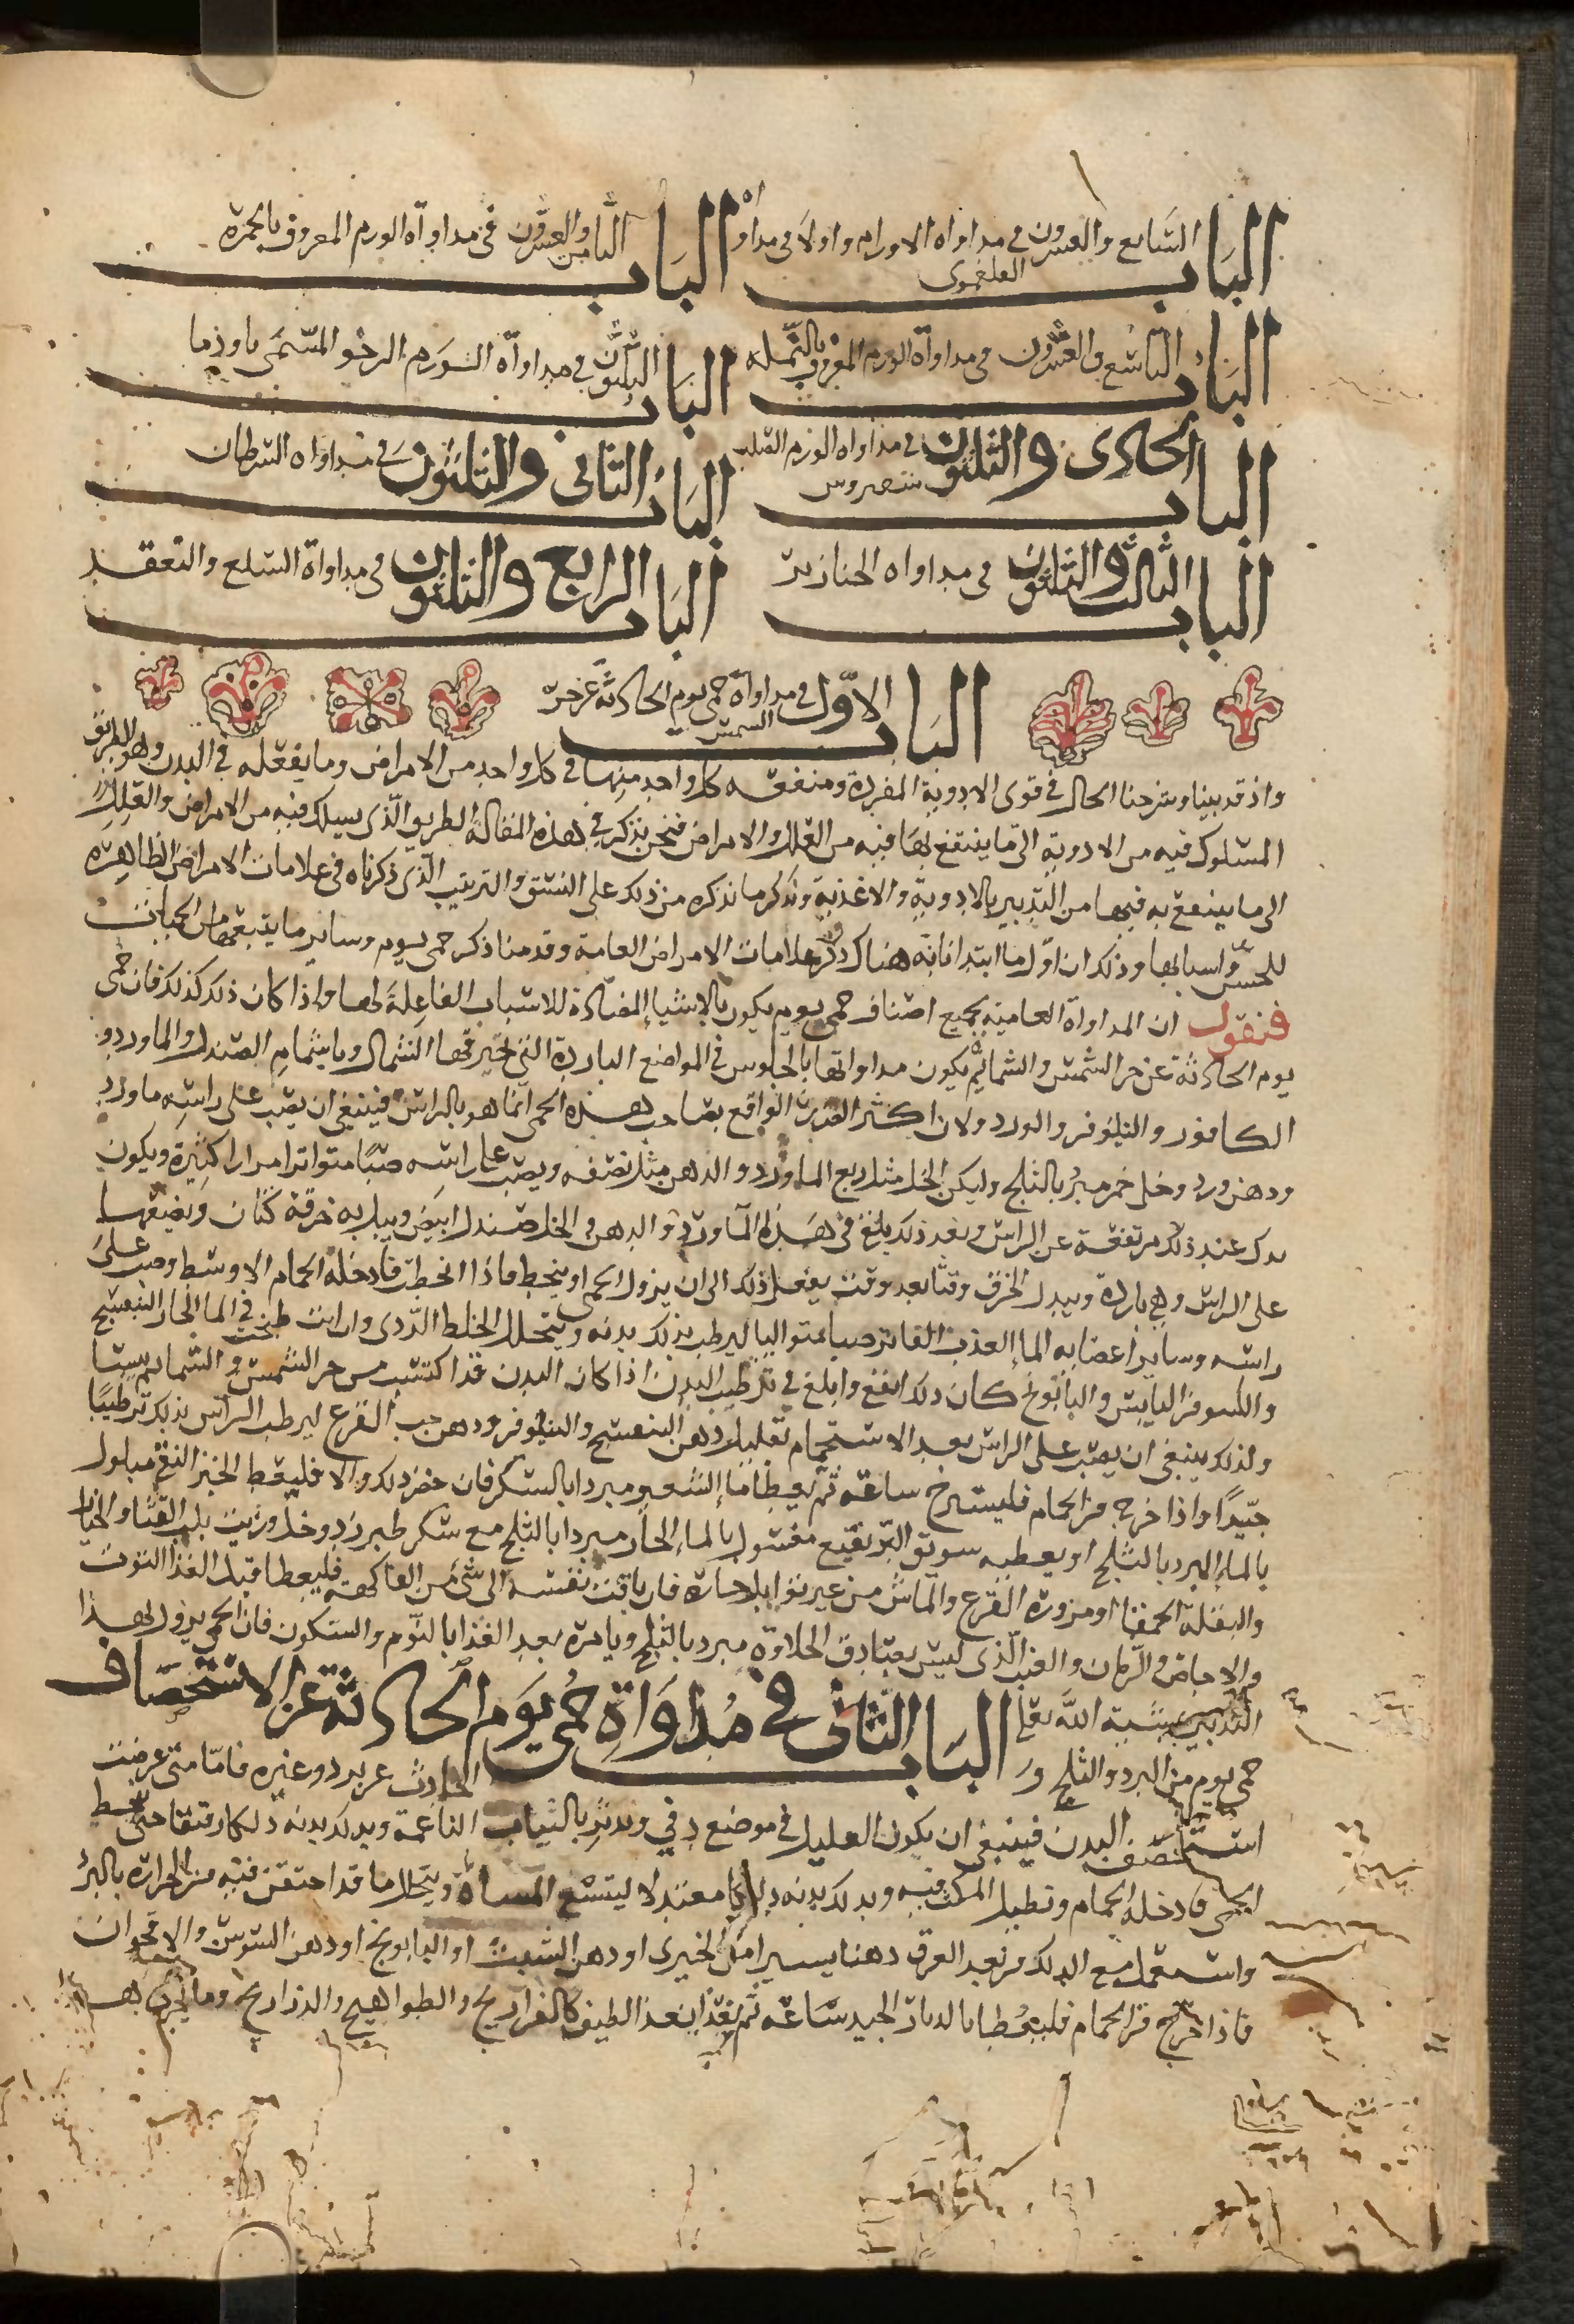 الباب السابع والعشرون في مداواه الاورام واولا في مداواه الفلغموني
الباب الثامن والعشرون في مداواة الورم المعروف بالحمره
الباب التاسع والعشرون في مداواة الورم المعروف بالنمله
الباب الثلثون في مداواة الورم الرخو المسمى باوذيما
الباب الحادى والثلثون في مداواه الورم الصلب
الباب الثانى والثلثون في مداواه السرطان
الباب الثالث والثلثون في مداواه الخنازير
الباب الرابع والثلثون في مداواة السلع والتعقد
الباب الاول في مداواة حمى يوم الحادثه عن حر الشمس
واذ قد بينا وشرحنا الحال في قوى الادوية المفردة ومنفعه كل واحد منها في كل واحد من الامراض وما يفعله في البدن وهو الطريق
المسلوك فيه من الادوية الى ما ينتفع بها فيه من العلل والامراض فنحن نذكر في هذه المقالة الطريق الذى يسلك فيه من الامراض والعلل
الى ما ينتفع به فيها من التدبير بالادوية والاغذية ونذكر ما نذكره من ذلك على النسق والترتيب الذى ذكرناه في علامات الامراض الظاهره
للحس واسبابها وذلك ان اول ما ابتدانا به هناك ذكر علامات الامراض العامة وقدمنا ذكر حمى يوم وساير ما يتبعها من الحميات
فنقول ان المداواة العامية بجميع اصناف حمى يوم يكون بالاشيا المضادة للاسباب الفاعلة لها واذا كان ذلك كذلك فان حمى
يوم الحادثة عن حر الشمس والسمائم يكون مداواتها بالجلوس في المواضع الباردة التي تخترقها الشمال وباشمام الصندل والماورد و
الكافور والنيلوفر والورد ولان اكثر الضرر الواقع بصاحب هذه الحمى انما هو بالراس فينبغي ان يصب على راسه ماورد
ودهن ورد وخل خمر مبرد بالثلج وليكن الخل مثل ربع الماورد والدهن مثل نصفه ويصب على راسه صبا متواترا مرارا كثيرة ويكون
يدك عند ذلك مرتفعة عن الراس وبعد ذلك في هذا الماورد والدهن والخل صندل ابيض ويبل به خرقة كتان ويضعها
على الراس وهي باردة ويبدل الخرق وقتا بعد وقت يفعل ذلك الى ان يزول الحمى او ينحط فاذا انحطت فادخله الحمام الاوسط وصب على
راسه وساير اعضايه الما العذب الفاتر صبا متواليا ليرطب بذلك بدنه ويتحلل الخلط الردى وان انت طبخت في الما الحار البنفسج
والنيلوفر اليابس والبابونج كان ذلك انفع وابلغ في ترطيب البدن اذا كان البدن قد اكتسب من حر الشمس والسمايم يبسا
ولذلك ينبغي ان يصب على الراس بعد الاستحمام بقليل دهن البنفسج والنيلوفر ودهن حب القرع ليرطب الراس بذلك ترطيبا
جيدا واذا خرج من الحمام فليسترح ساعة ثم يعطا ما الشعير مبردا بالسكر فان حضر ذلك والا فليعط الخبز النقي مبلول
بالما المبرد بالثلج او يعطيه سويق البر نقيع مغسول بالما الحار مبردا بالثلج مع سكر طبرزد وخل وزيت بلب القثا والخيار
والبقلة الحمقا او مزورة القرع والماش من غير توابل حارة فان تاقت نفسه الى شى من الفاكهة فليعطا قبل الغذا التوت
والاجاص والرمان والعنب الذى ليس بصادق الحلاوة مبرد بالثلج ويامره بعد الغذا بالنوم والسكون فان الحمى يزول بهذا
التدبير بمشية الله تعالى
الباب الثانى في مداواة حمى يوم الحادثة عن الاستحصاف
حمى يوم من البرد والثلج و
الحادث عن برد وغيره فاما متى عرضت
استحصف البدن فينبغي ان يكون العليل في موضع دفي ويدثر بالثياب الناعمة ويدلك بدنه دلكا رقيقا حتى ينحط
الحمى فادخله الحمام وتطيل المكث فيه ويدلك بدنه دلكا معتدلا ليتسع المسام ويتحلل ما قد احتقن فيه من الحرارة بالبرد
واستعمل مع الدلك من بعد العرق دهنا يسيرا مثل الخيرى او دهن الشبت او البابونج او دهن السوسن والاقحوان
فاذا خرج من الحمام فليغطا بالدثار الجيد ساعة ثم يغذا بغذا لطيف كالفراريج والطواهيج والدراريج وما يجرى